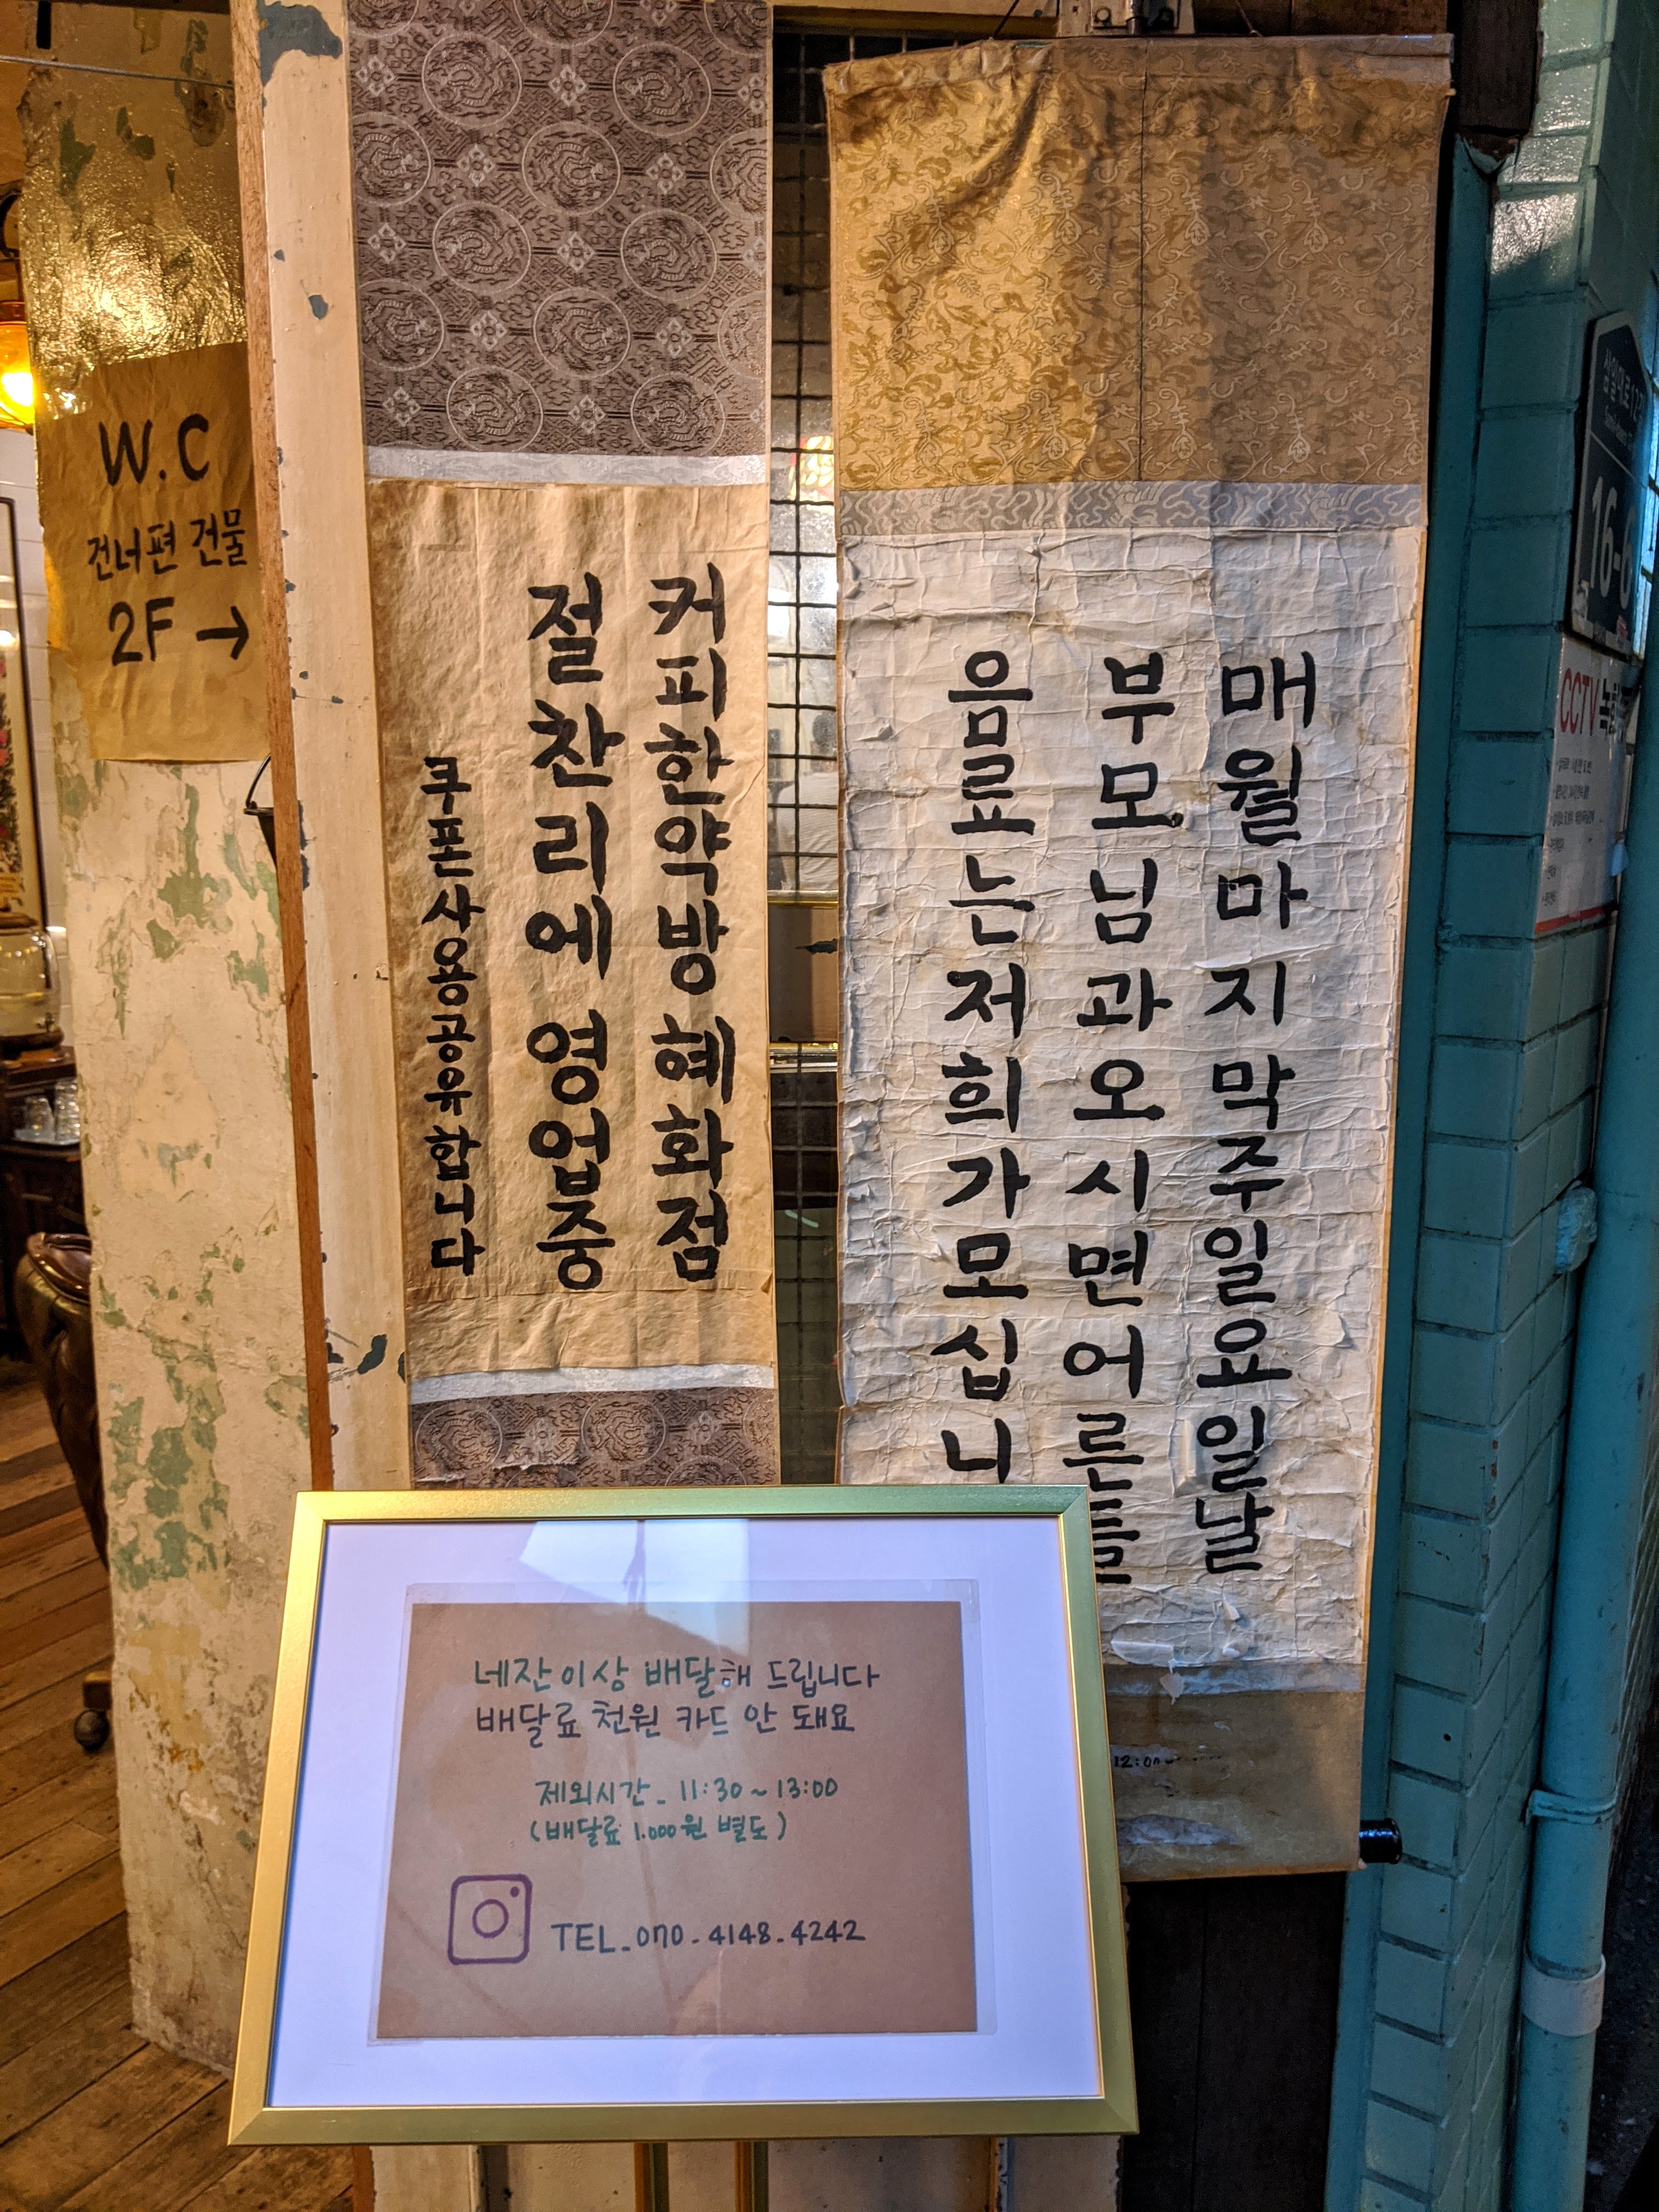 W.C
건너편 건물
2F →
커피한약방 혜화점
절찬리에 영업중
쿠폰사용공유합니다
매월마지막주일요일날
부모님과오시면어른들
음료는저희가모십니
네잔이상 배달해 드립니다
배달료 천원 카드 안 돼요
제외시간_ 11:30 ~ 13:00
(배달료 1.000원 별도)
TEL_070-4148-4242
16-
CCTV